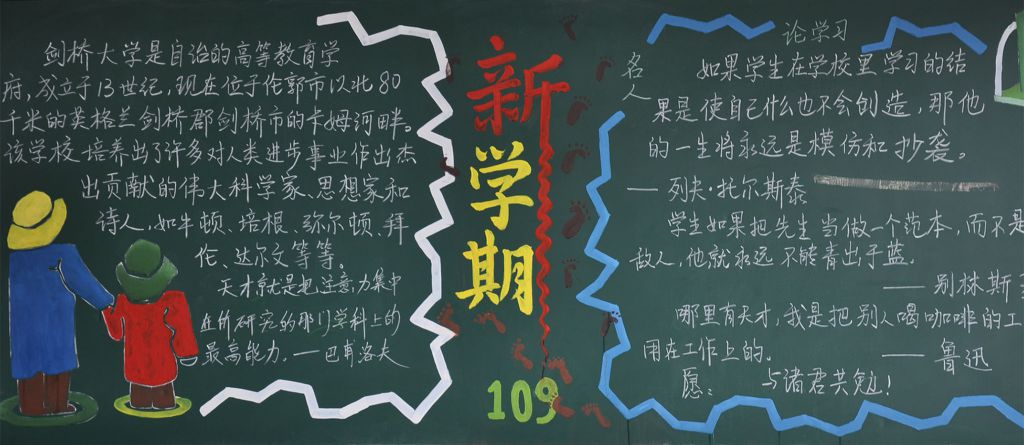 剑桥大学是自治的高等教育学
府,成立于13世纪,现在位于伦郭市以北80
千米的英格兰剑桥郡剑桥市的卡姆河畔。
该学校培养出了许多对人类进步事业作出杰
出贡献的伟大科学家、思想家和
诗人,如牛顿、培根、弥尔顿、拜
伦、达尔文等等
天才就是把注意力集中
在价研究的那门学科上的
最高能力.——巴甫洛夫
新
学
期
109
名人
论学习
如果学生在学校里学习的结
果是使自己什么也不会创造,那他
的一生将永远是模仿和抄袭。
—列夫·托尔斯泰
学生如果把先生当做一个范本,而不是
敌人,他就永远不能青出于蓝.
——别林斯
哪里有天才,我是把别人喝咖啡的工
用在工作上的.——鲁迅
愿:与诸君共勉!